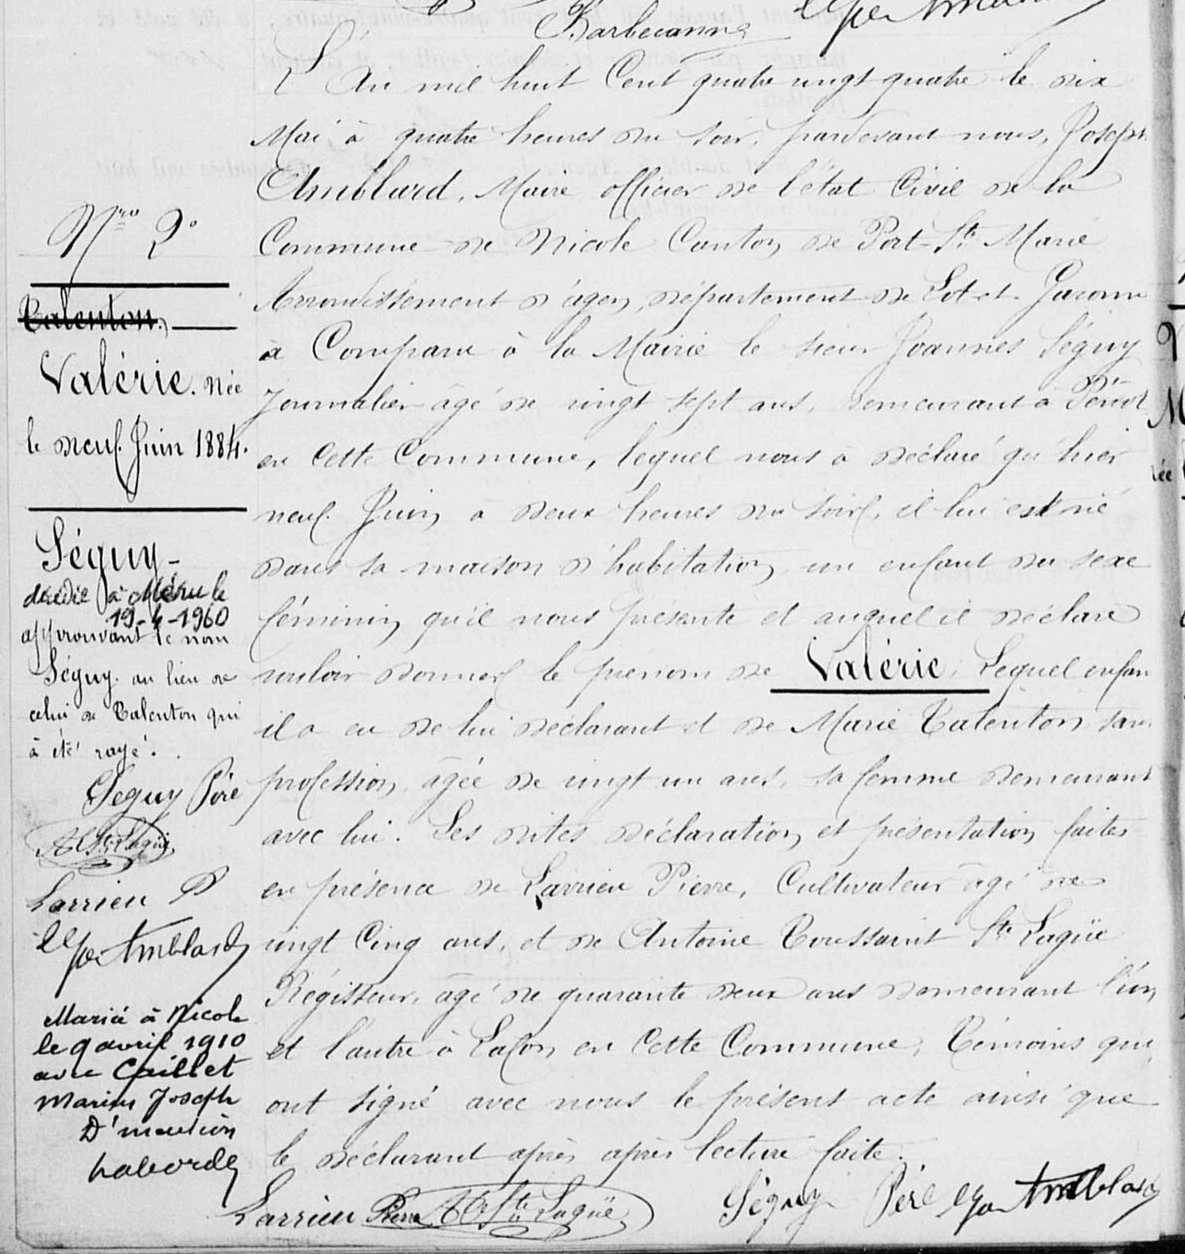 Barbecanne
L'An mil huit Cent quatre vingt quatre le dix
Mai à quatre heures du soir, pardevant nous, Joseph
Amblard, Maire officier de l'état Civil de la
Commune de Nicole Canton de Port-Ste Marie
Arrondissement d'agen, département de Lot-et-Garonne
à Comparu à la Mairie le sieur Joannès Séguy
Journalier âgé de vingt sept ans, demeurant à
en Cette Commune, lequel nous a déclaré qu'hier
neuf Juin à deux heures du soir, il lui est né
dans sa maison d'habitation un enfant du sexe
féminin qu'il nous présente et auquel il déclare
vouloir donner le prénom de Valérie, Lequel enfan
il a eu de lui déclarant et de Marie Talenton, sans
profession, âgée de vingt un ans, sa femme demeurant
avec lui. Les dites déclaration et présentation faites
en présence de Larrieu Pierre, Cultivateur âgé de
vingt Cinq ans, et de Antoine Toussaint Ste Lagüe
Régisseur, âgé de quarante deux ans demeurant l'un
et l'autre à Lafon en Cette Commune, Témoins qui
ont signé avec nous le présent acte ainsi que
le déclarant après après lecture faite.
Larrieu Pierre A Ste Lagüe Séguy Père Amblard
Nro 2°
Talenton
Valérie. Née
le neuf Juin 1884.
Séguy
décédée à Méru le
19-4-1960
approuvant le nom
Séguy au lieu de
celui de Talenton qui
à été rayé.
Séguy Père
Ste Lagüe
Larrieu P
Amblard
Marié à Nicole
le 9 avril 1910
avec Caillet
Marius Joseph
D'